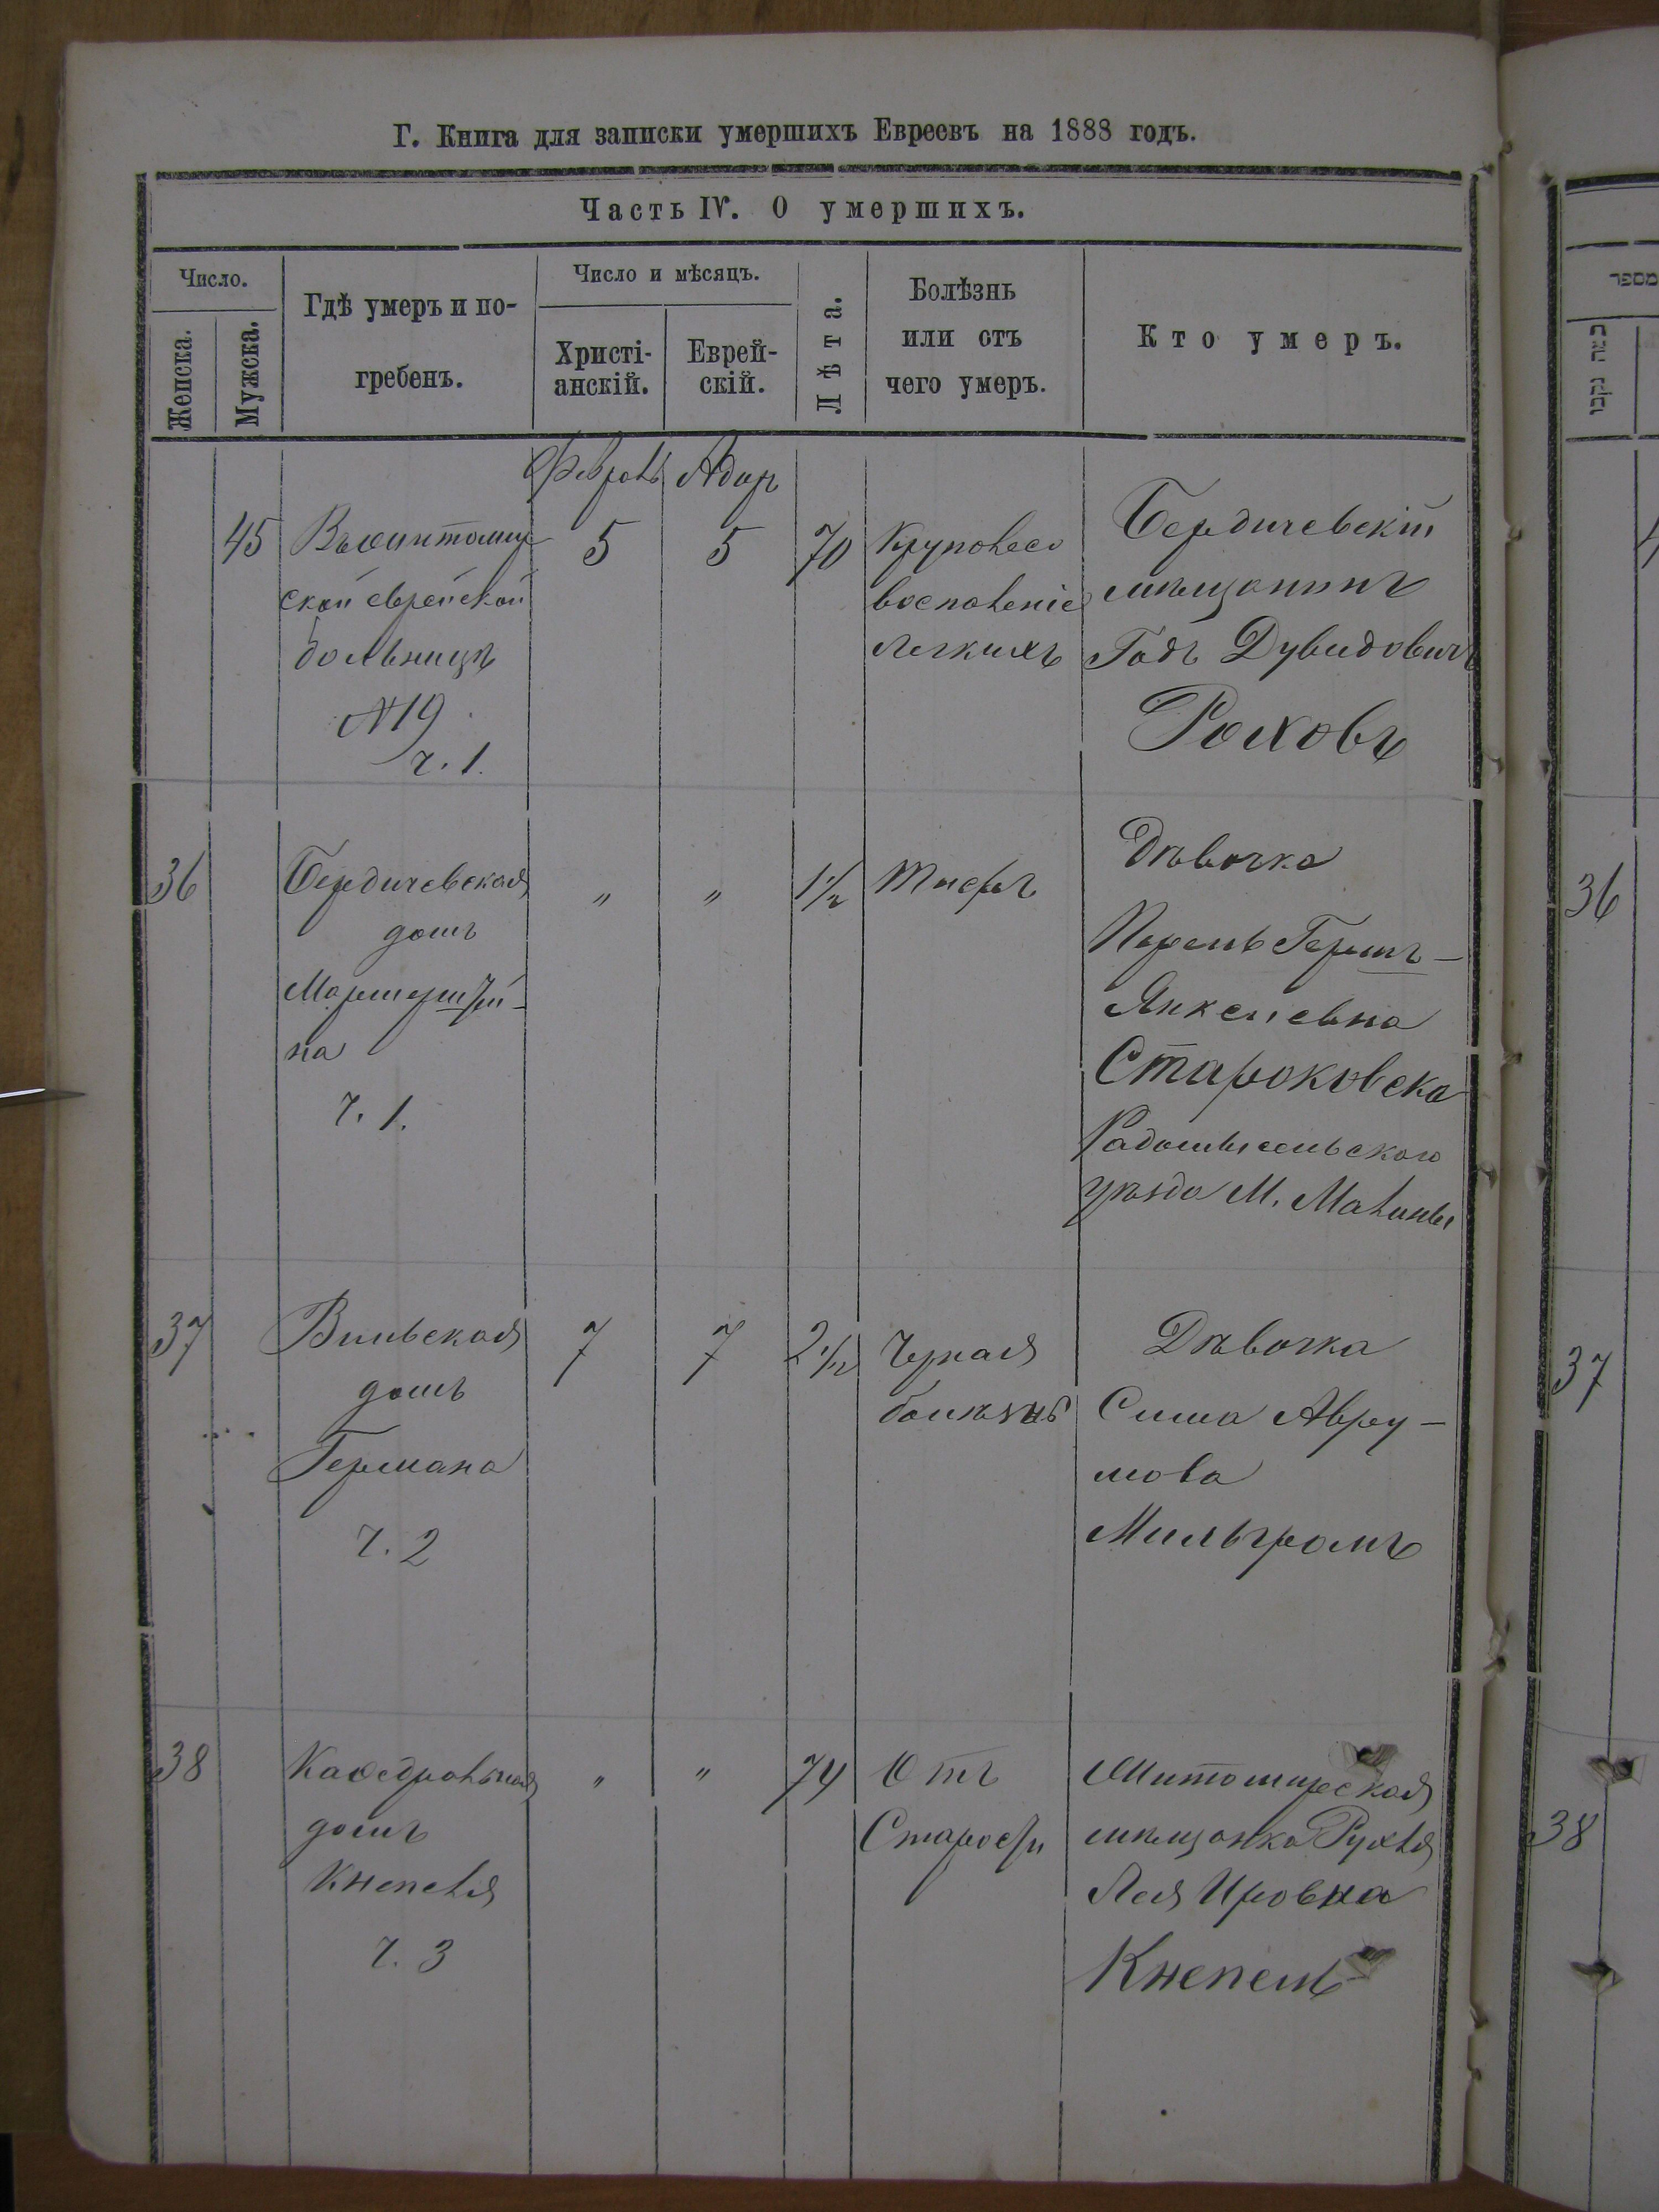 Г. Книга для записки умершихъ Евреевъ на 1888 годъ.
Часть IV. О умершихъ.
Число.
Женска.
Мужска.
Гдѣ умеръ и по-
гребенъ.
Число и мѣсяцъ.
Христі-
анскій.
Еврей-
скій.
Лѣта.
Болѣзнь
или отъ
чего умеръ.
Кто умеръ.
Февраль Адар
45
Въ Житомир
ской еврейской
больницѣ
№19
ч. 1.
5
5
70
Круповое
воспаленіе
легкихъ
Бердичевскій
мѣщанинъ
Гадъ Дувидовичъ
36
Бердичевская
домъ
на
ч. 1.
"
"
1 1/2
Тифъ
Дѣвочка
Перель Гершъ-
Янкелевна
Староковска
Радомысельского
уѣзда М. Малины
37
Вильская
домъ
Германа
ч. 2
7
7
2 1/12
Черная
болѣзнь
Дѣвочка
Сима Авру-
мова
Мильгромъ
38
Каѳедральная
домъ
Кнепеля
ч. 3
"
"
74
Отъ
Старости
Житомирская
мѣщанка Рухля
Лея Ировна
Кнепель
מספר
נקבי
36
37
38